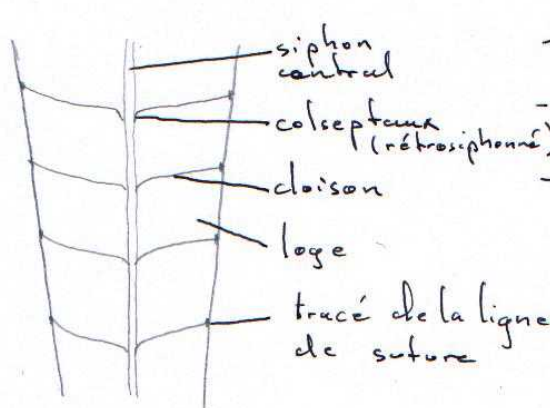 siphon
central
colseptaux
(rétrosiphonné)
cloison
loge
tracé de la ligne
de suture